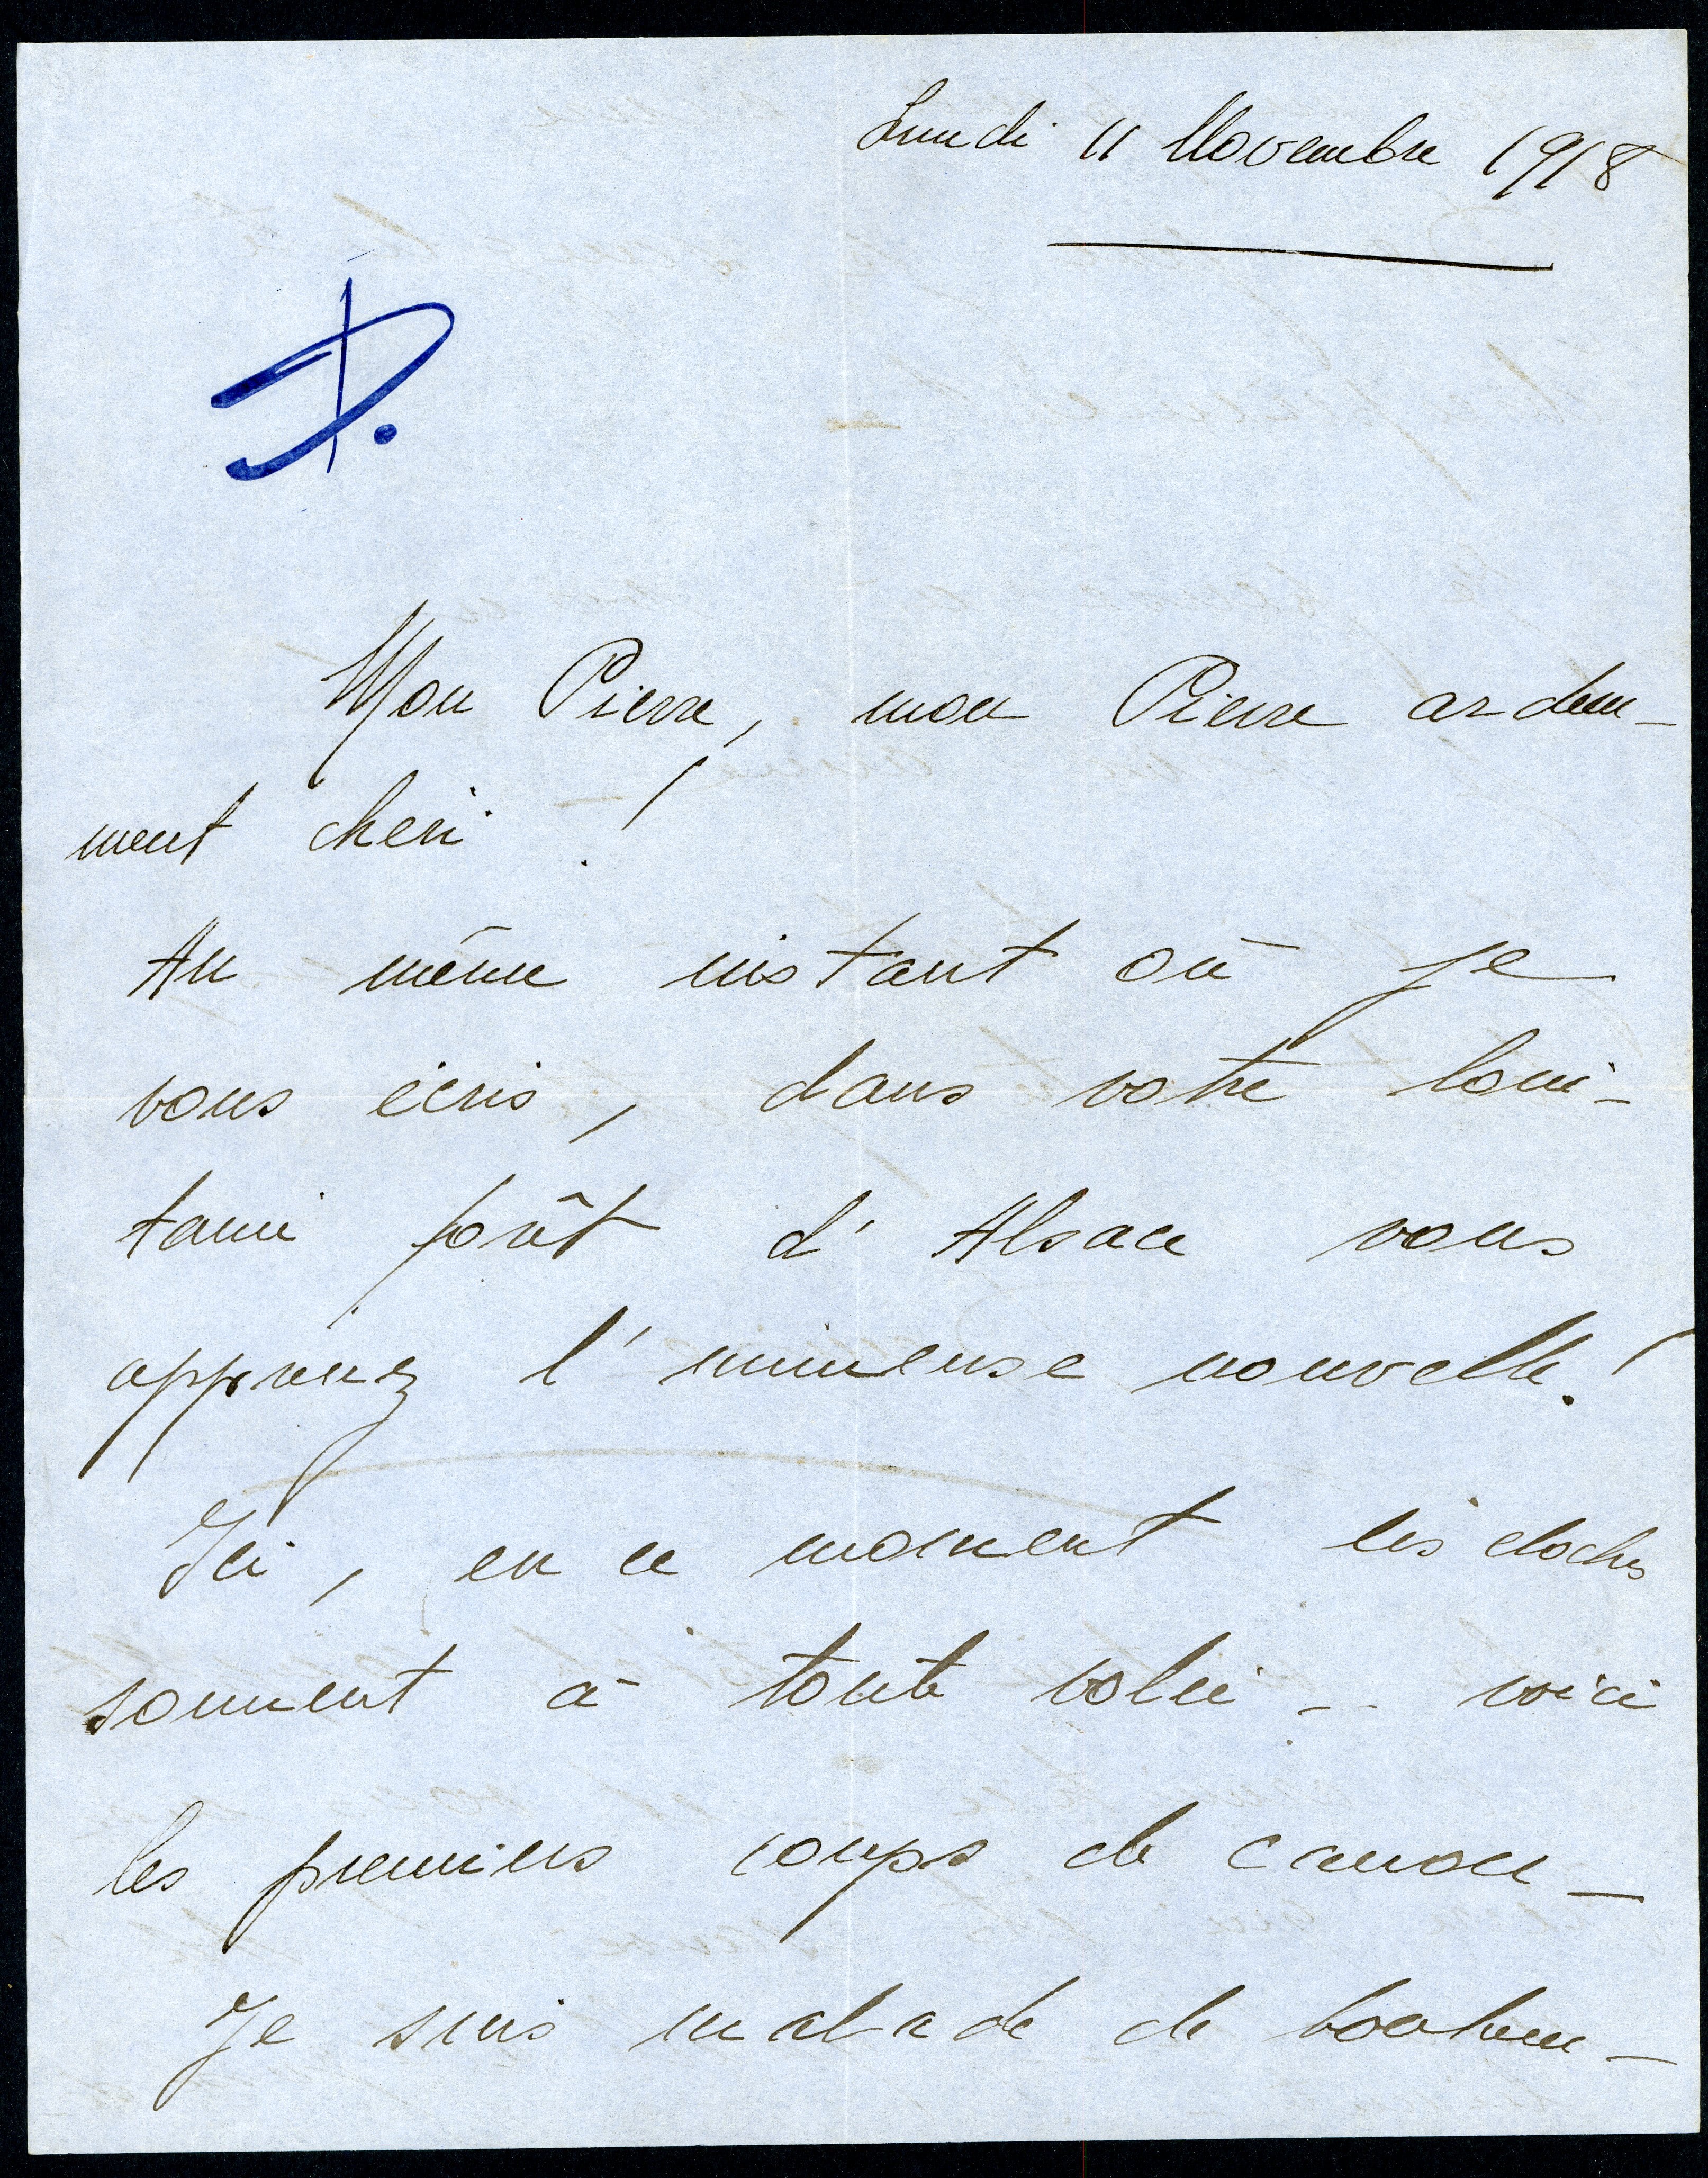 Lundi 11 Novembre 1918
D.
Mon Pierre, mon Pierre ardem-
ment chéri !
Au même instant où je
vous écris, dans votre loin-
tain forêt d'Alsace vous
apprenez l'immense nouvelle !
Ici, en ce moment les cloches
sonnent à toute volée -- voici
les premiers coups de canon -
Je suis malade de bonheur -